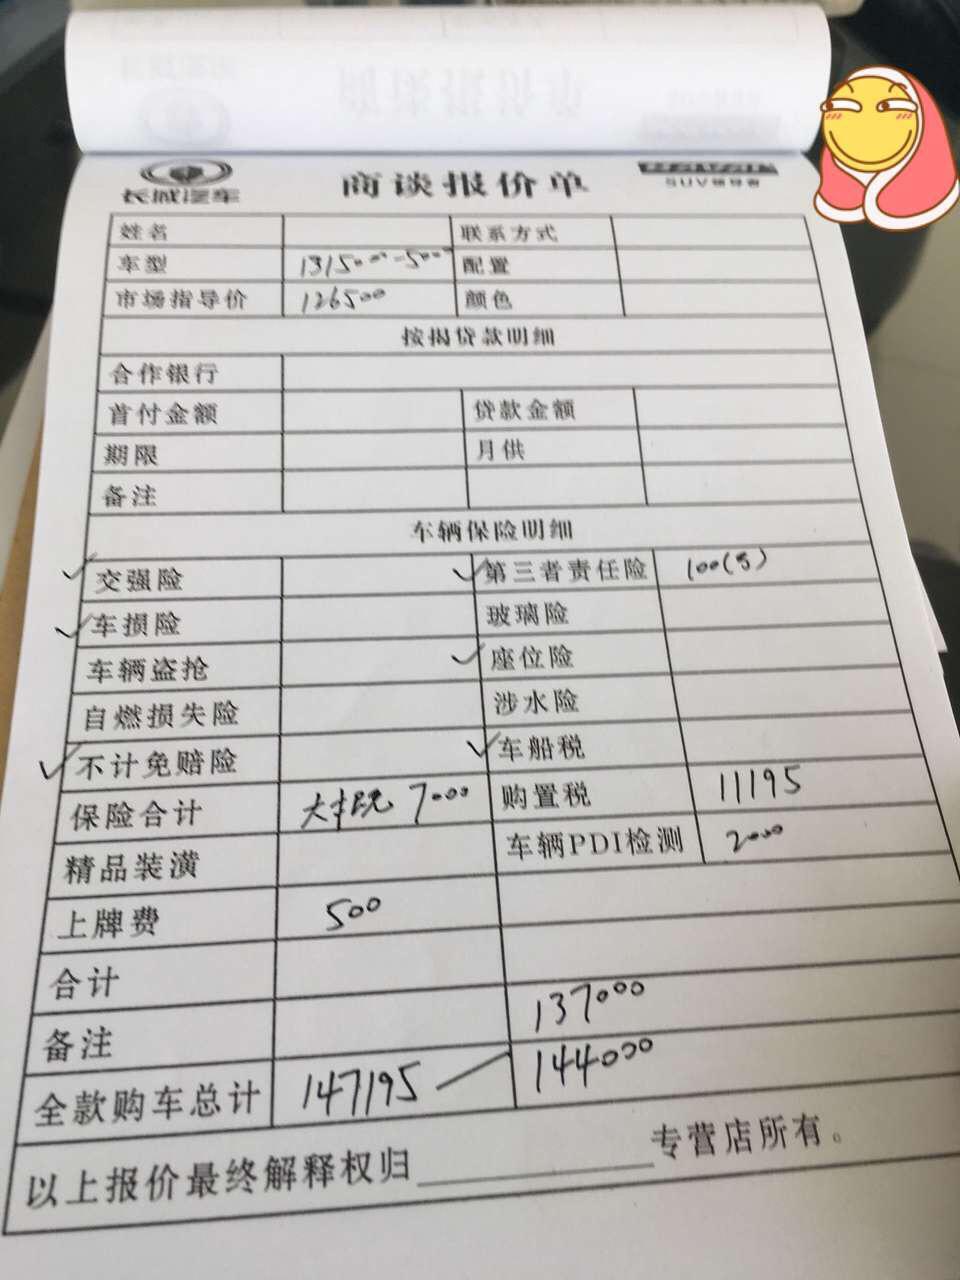 长城汽车 商谈报价单 HAVAL
SUV领导者
姓名 联系方式
车型 131500-5000 配置
市场指导价 126500 颜色
按揭贷款明细
合作银行
首付金额 贷款金额
期限 月供
备注
车辆保险明细
交强险 第三者责任险 100(万)
车损险 玻璃险
车辆盗抢 座位险
自燃损失险 涉水险
不计免赔险 车船税
保险合计 7000 购置税 11195
精品装潢 车辆PDI检测 2000
上牌费 500
合计
备注 137000
全款购车总计 147195 — 144000
以上报价最终解释权归 专营店所有。